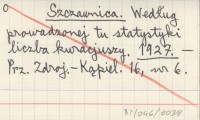 Szczawnica. Według
prowadzonej tu statystyki
liczba kuracjuszy. 1927. –
Prz. Zdroj.-Kąpiel. 16, nr 6.